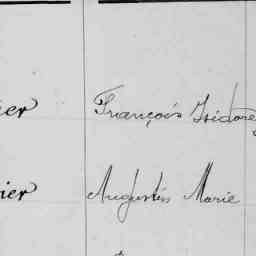 ier François Isidore
ier Augustin Marie